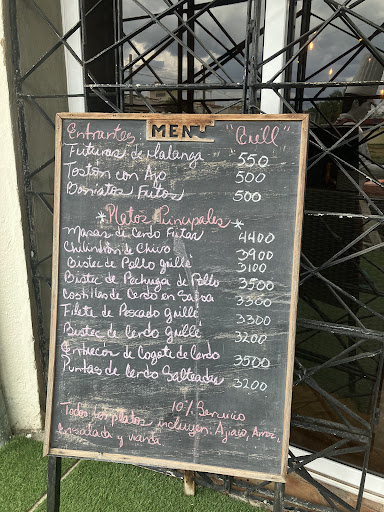 MENU
Entrantes: "Grill"
Frituras de Malanga 550
Tostón con Ajo 500
Boniatos Fritos 500
*Platos Principales*
Masas de Cerdo Fritas 4400
Chilindrón de Chivo 3900
Bistec de Pollo grillé 3100
Bistec de Pechuga de Pollo 3500
Costillas de Cerdo en Salsa 3300
Filete de Pescado grillé 3300
Bistec de Cerdo Grillé 3200
Entrecot de Cogote de Cerdo 3500
Puntas de Cerdo Salteadas 3200
10% Servicio
Todos los platos incluyen: Ajiaco, Arroz,
ensalada y vianda